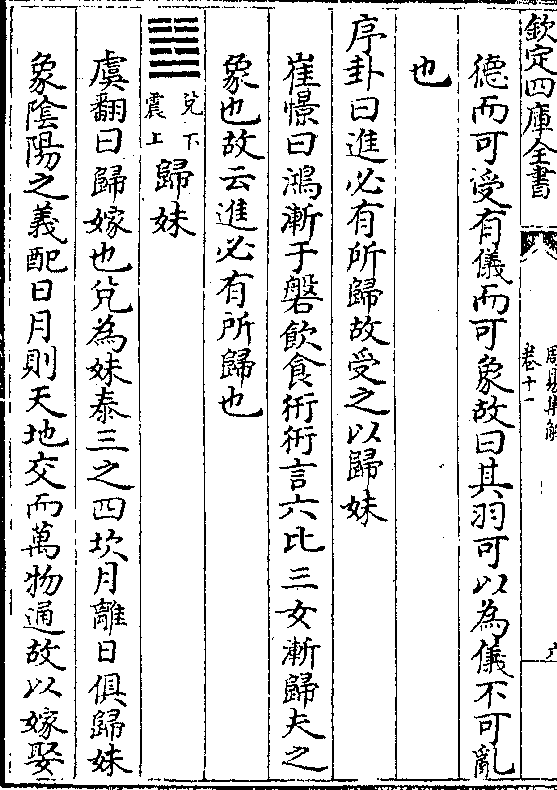 欽定四庫全書
周易集解
卷十一
德而可受有儀而可象故曰其羽可以為儀不可亂
也
序卦曰進必有所歸故受之以歸妹
崔憬曰鴻漸于磐飲食衎衎言六比三女漸歸夫之
象也故云進必有所歸也
䷵
兌下
震上
歸妹
虞翻曰歸嫁也兌為妹泰三之四坎月離日俱歸妹
象陰陽之義配日月則天地交而萬物通故以嫁娶